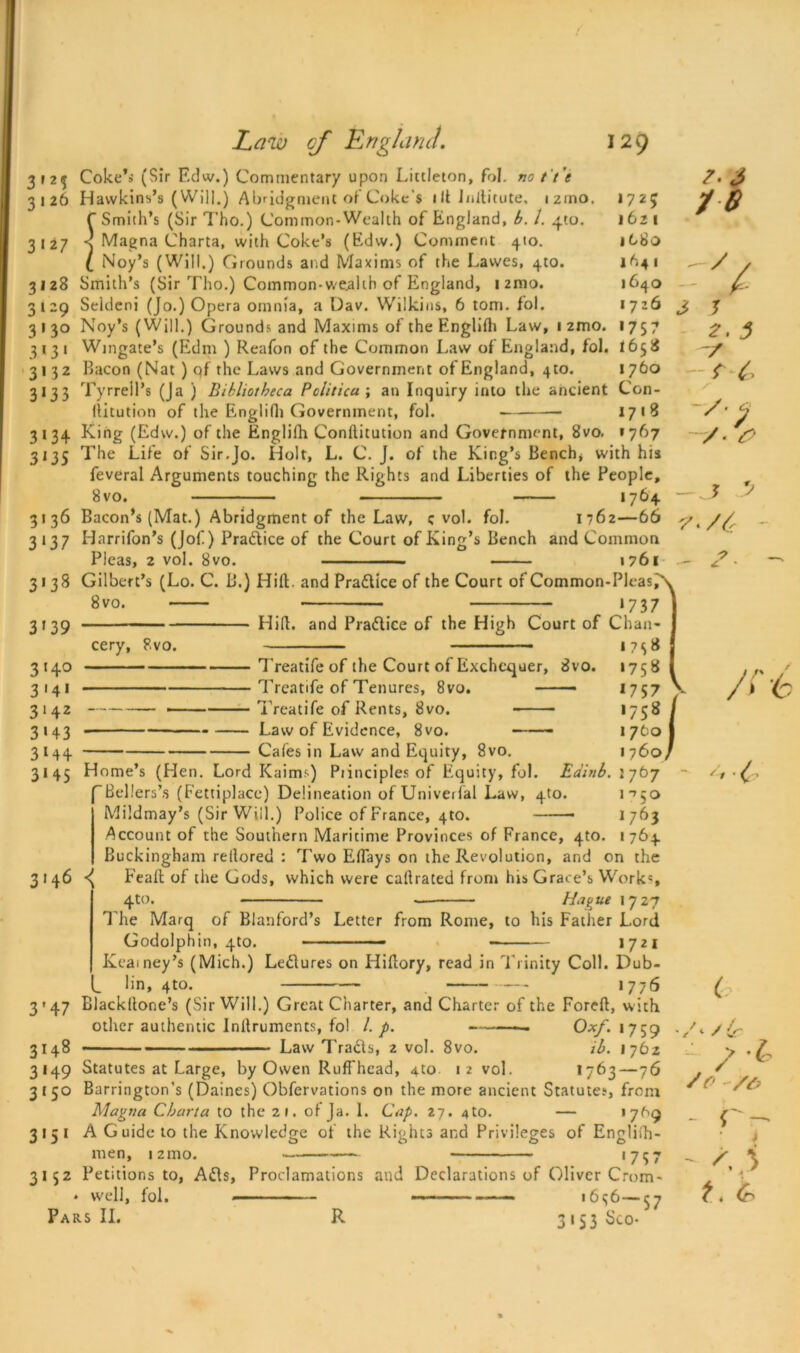 Law of England. 129
3125 Coke's (Sir Edw.) Commentary upon Littleton, fol. no t't'e
3126 Hawkins's (Will.) Abridgment of Coke's 1st Institute, 12mo. 1725
Smith's (Sir Tho.) Common-Wealth of England, b. l. 4to. 1621
3127 Magna Charta, with Coke's (Edw.) Comment 4to. 1680
Noy's (Will.) Grounds and Maxims of the Lawes, 4to. 1641
3128 Smith's (Sir Tho.) Common-wealth of England, 12mo. 1640
3129 Seldeni (Jo.) Opera omnia, a Dav. Wilkins, 6 tom. fol. 1726
3130 Noy's (Will.) Grounds and Maxims of the Engliſh Law, 12mo. 1757
3131 Wingate's (Edm ) Reaſon of the Common Law of England, fol. 1658
3132 Bacon (Nat ) of the Laws and Government of England, 4to. 1760
3133 Tyrrell's (Ja ) Bibliotheca Politica; an Inquiry into the ancient Con-
ſtitution of the Engliſh Government, fol. ——— 1718
3134 King (Edw.) of the Engliſh Conſtitution and Government, 8vo. 1767
3135 The Life of Sir.Jo. Holt, L. C. J. of the King's Bench, with his
ſeveral Arguments touching the Rights and Liberties of the People,
8vo. ——— ——— —— 1764
3136 Bacon's (Mat.) Abridgment of the Law, 5 vol. fol. 1762—66
3137 Harriſon's (Joſ.) Practice of the Court of King's Bench and Common
Pleas, 2 vol. 8vo. ——— —— 1761
3138 Gilbert's (Lo. C. B.) Hiſt. and Practice of the Court of Common-Pleas,
8vo. —— ——— ——— 1737
3139 ——————— Hiſt. and Practice of the High Court of Chan-
cery, 8vo. ——— ——— 1758
3140 ——————— Treatiſe of the Court of Exchequer, 8vo. 1758
3141 ——————— Treatiſe of Tenures, 8vo. —— 1757
3142 ——————— Treatiſe of Rents, 8vo. —— 1758
3143 ——————— Law of Evidence, 8vo. —— 1760
3144 ——————— Caſes in Law and Equity, 8vo. 1760
3145 Home's (Hen. Lord Kaims) Principles of Equity, fol. Edinb. 1767
Bellers's (Fettiplace) Delineation of Univerſal Law, 4to. 1750
Mildmay's (Sir Will.) Police of France, 4to. —— 1763
Account of the Southern Maritime Provinces of France, 4to. 1764
Buckingham reſtored : Two Eſſays on the Revolution, and on the
3146 Feaſt of the Gods, which were caſtrated from his Grace's Works,
4to. ——— ——— Hague 1727
The Marq of Blanford's Letter from Rome, to his Father Lord
Godolphin, 4to. ——— ——— 1721
Kearney's (Mich.) Lectures on Hiſtory, read in Trinity Coll. Dub-
lin, 4to. ——— ——— 1776
3147 Blackſtone's (Sir Will.) Great Charter, and Charter of the Foreſt, with
other authentic Inſtruments, fol l. p. ——— Oxf. 1759
3148 ——————— Law Tracts, 2 vol. 8vo. ib. 1762
3149 Statutes at Large, by Owen Ruffhead, 4to. 12 vol. 1763—76
3150 Barrington's (Daines) Obſervations on the more ancient Statutes, from
Magna Charta to the 21. of Ja. I. Cap. 27. 4to. — 1769
3151 A Guide to the Knowledge of the Rights and Privileges of Engliſh-
men, 12mo. ——— ——— 1757
3152 Petitions to, Acts, Proclamations and Declarations of Oliver Crom-
well, fol. ——— ——— 1656—57
Pars II. R 3153 Sco-